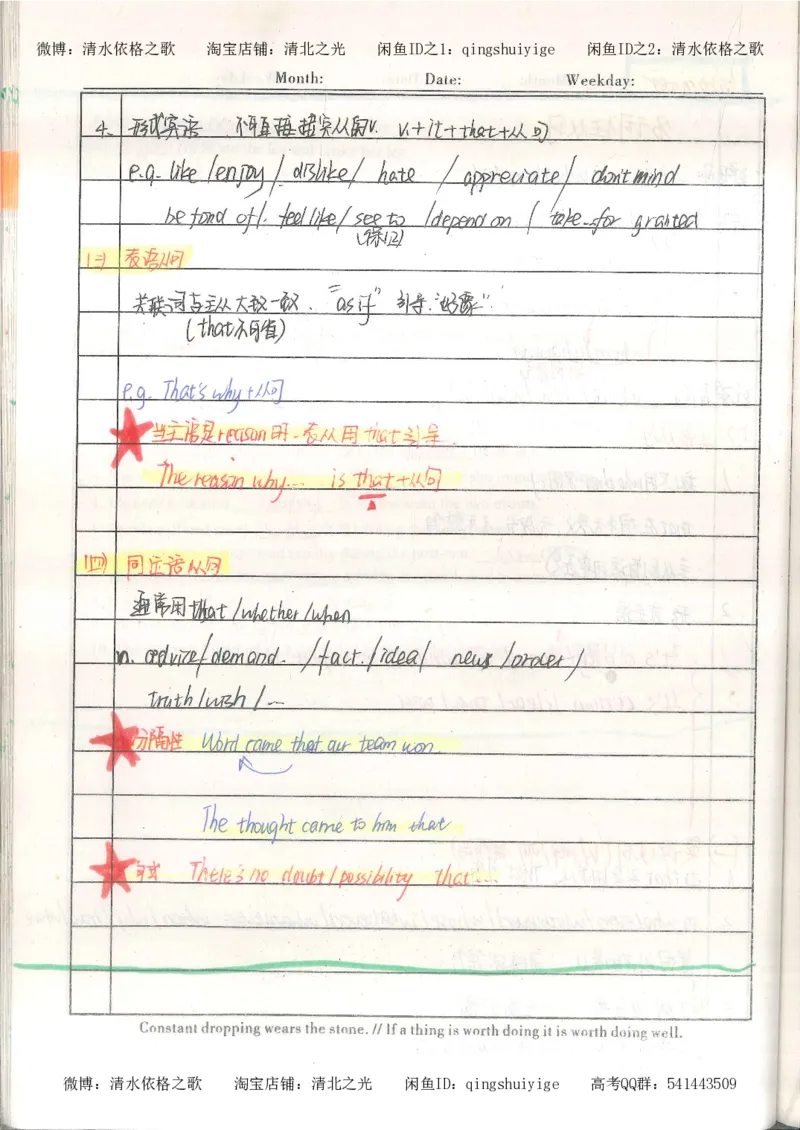 微博：清水依格之歌 淘宝店铺：清北之光 闲鱼ID之1：qingshuiyige 闲鱼ID之2：清水依格之歌
Month: Date: Weekday:
4. 形式宾语 不可直接超宾从的v. v.+it+that+从句
e.g. like/enjoy/dislike/ hate /appreciate/ don't mind
be fond of/. feel like/ see to /depend on / take..for granted
(保证)
(三) 表语从句
关联词与主从大致一致. "as if" 引导"好像".
(that不可省)
e.g. That's why+从句
当主语是reason时.表从用that引导.
The reason why... is that+从句
(四) 同位语从句
通常用that/whether/when
n. advice/demand. /fact./idea/ news/order/
truth/wish/...
分隔性 Word came that our team won.
The thought came to him that
句式 There's no doubt/possibility that...
Constant dropping wears the stone. // If a thing is worth doing it is worth doing well.
微博：清水依格之歌 淘宝店铺：清北之光 闲鱼ID：qingshuiyige 高考QQ群：541443509